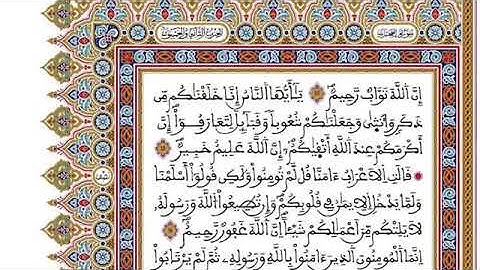 سُورَةُ الحُجُرَاتِ
إِنَّ اَللَّهَ تَوَّابٌ رَّحِيمٌ يَٰٓأَيُّهَا اَلنَّاسُ إِنَّا خَلَقْنَٰكُم مِّن
ذَكَرٍ وَأُنثَىٰ وَجَعَلْنَٰكُمْ شُعُوباً وَقَبَآئِلَ لِتَعَارَفُوٓاْ إِنَّ
أَكْرَمَكُمْ عِندَ اَللَّهِ أَتْقَيٰكُمْ إِنَّ اَللَّهَ عَلِيمٌ خَبِيرٌ
قَالَتِ اِلَاعْرَابُ ءَامَنَّا قُل لَّمْ تُومِنُواْ وَلَٰكِن قُولُوٓاْ أَسْلَمْنَا
وَلَمَّا يَدْخُلِ اِلِايمَٰنُ فِي قُلُوبِكُمْ وَإِن تُطِيعُواْ اُللَّهَ وَرَسُولَهُۥ
لَا يَلِتْكُم مِّنَ اَعْمَٰلِكُمْ شَيْـٔاً إِنَّ اَللَّهَ غَفُورٌ رَّحِيمٌ
إِنَّمَا اَلْمُومِنُونَ اَلذِينَ ءَامَنُواْ بِاللَّهِ وَرَسُولِهِۦ ثُمَّ لَمْ يَرْتَابُواْ